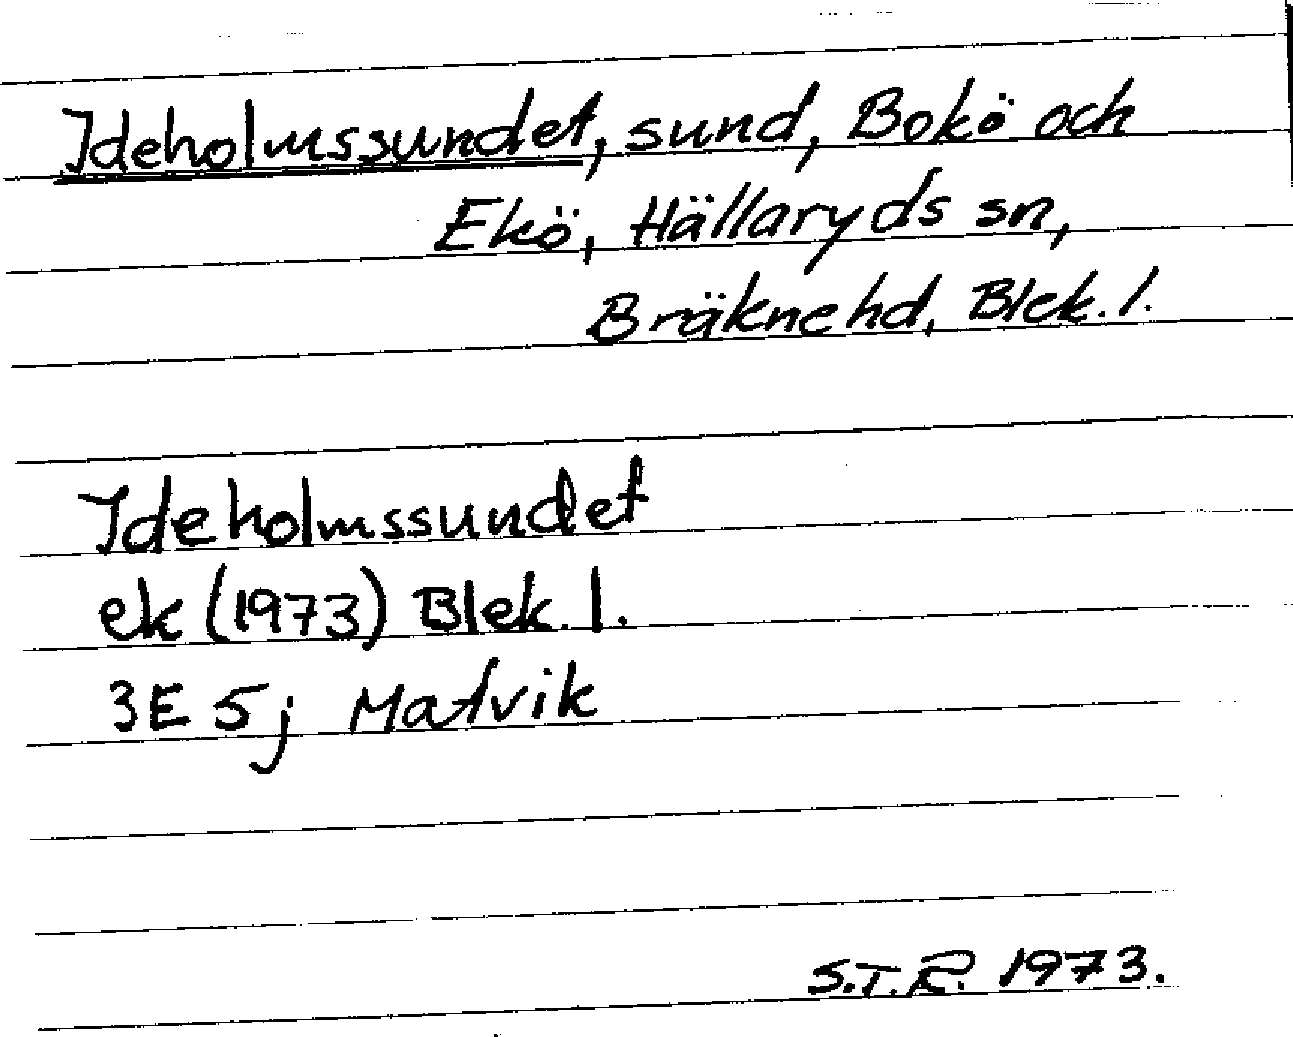 Ideholmssundet, sund, Bokö och
Ekö, Hällaryds sn,
Bräknehd, Blek. l.
Ideholmssundet
ek (1973) Blek. l.
3E 5j Matvik
S.T.R. 1973.